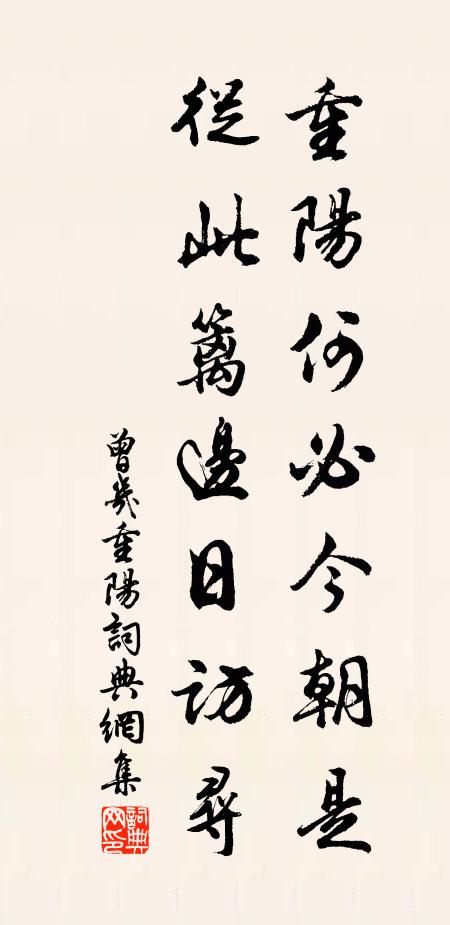 重陽何必今朝是
從此籬邊日訪尋
曾幾重陽詞典網集
詞典網印